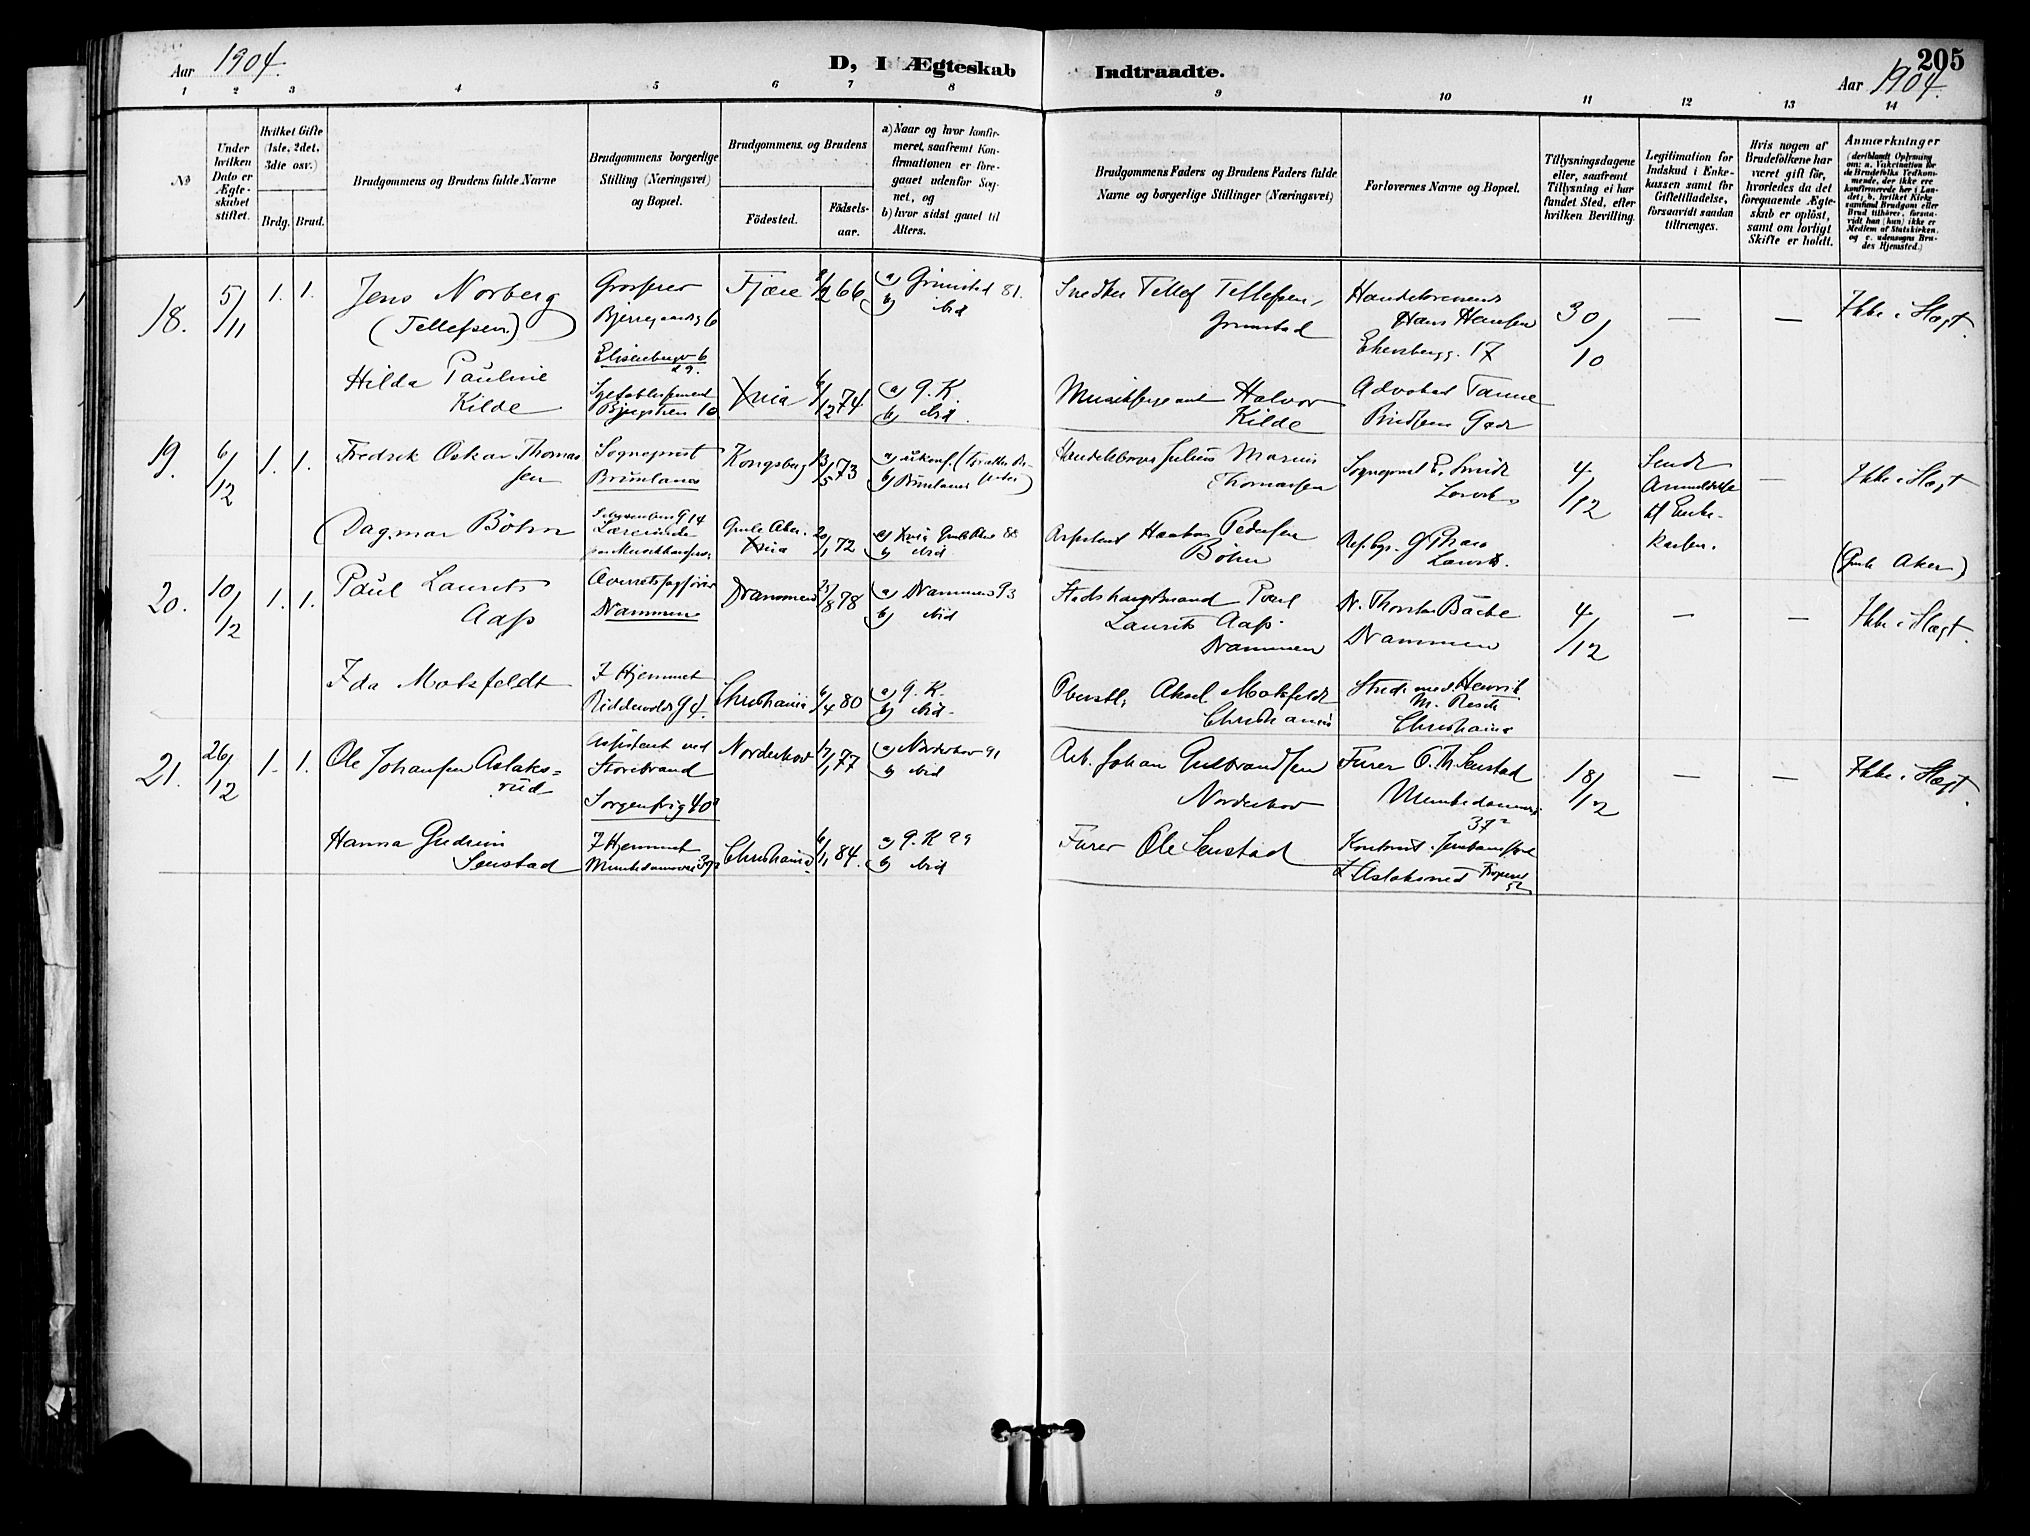 Aar 1904.
D, I Ægteskab Indtraadte.
205
Aar 1904.
1 2 3 4 5 6 7 8 9 10 11 12 13 14
No
Under hvilken Dato er Ægteskabet stiftet.
Hvilket Gifte (1ste, 2det, 3die osv.)
Brdg. Brud.
Brudgommens og Brudens fulde Navne
Brudgommens borgerlige Stilling (Næringsvei) og Bopæl.
Brudgommens og Brudens
Fødested.
Fødsels-aar.
a) Naar og hvor konfirmeret, saafremt Konfirmationen er foregaaet udenfor Sognet, og
b) hvor sidst gaaet til Alters.
Brudgommens Faders og Brudens Faders fulde Navne og borgerlige Stillinger (Næringsvei)
Forlovernes Navne og Bopæl.
Tillysningsdagene eller, saafremt Tillysning ei har fundet Sted, efter hvilken Bevilling.
Legitimation for Indskud i Enkekassen samt for Giftetilladelse, forsaavidt saadan tiltrænges.
Hvis nogen af Brudefolkene har været gift før, hvorledes da det foregaaende Ægteskab er opløst, samt om lovligt Skifte er holdt.
Anmærkninger
(deriblandt Oplysning om: a. Vakcination for de Brudefolks Vedkommende, der ikke ere konfirmerede her i Landet; b. hvilket Kirkesamfund Brudgom eller Brud tilhører, forsaavidt han (hun) ikke er Medlem af Statskirken, og c. udensogns Brudes Hjemsted.)
18. 5/11 1. 1. Jens Norberg
(Tellefsen)
Grosserer
Bjerregaardsg 6
Fjære 8/2 66
a) Grimstad 81.
b) ibid
Snedker Tellef Tellefsen,
Grimstad
Hans Hansen
Ekersbergg. 17
30/10
—
—
Ikke i Slægt.
Hilda Pauline
Kilde
Elisenbergv 6
Xnia 6/12 74
a) g. K.
b) ibid.
Halvor
Kilde
Advokat
19. 6/12 1. 1. Fredrik Oskar Thomas
sen
Sogneprest
Brunlanes
Kongsberg 13/5 73
b) Brunlanes
Julius Marius
Thomassen
Sogneprest E.
4/12
Sendt
Anmeldelse
til Enke-
kassen.
—
Ikke i Slægt
Dagmar Böhn
Lærerinde
Gmle Aker.
Xnia 20/1 72
b) ibid
Pedersen
Böhn
(Gmle Aker)
20. 10/12 1. 1. Paul Laurits
Aass
Drammen
Drammen
a) Drammen 93
b) ibid
Paul
Laurits Aass.
Drammen
Dr. Thorstein Bache
Drammen
4/12
—
—
Ikke i Slægt.
Ida Motzfeldt
I Hjemmet
Riddervoldsg 4.
Christiania 6/4 80
a) g. K.
b) ibid.
Oberstl. Aksel Motzfeldt
Christiania
Stud. med. Henrik
Christiania
21. 26/12 1. 1. Ole Johansen Aslaks=
rud
Assistent ved
Storebrand
Sorgenfrig 40
Norderhov 17/1 77
a) Norderhov 91
b) ibid
Arb. Johan Gulbrandsen
Norderhov
Furer O. Th. Senstad
37
18/12
—
—
Ikke i Slægt.
Hanna Gudrun
Senstad
I Hjemmet
Munkedamsvei 37
Christiania 6/11 84.
a) g. K 99
b) ibid
Furer Ole Senstad
Aslaksrud